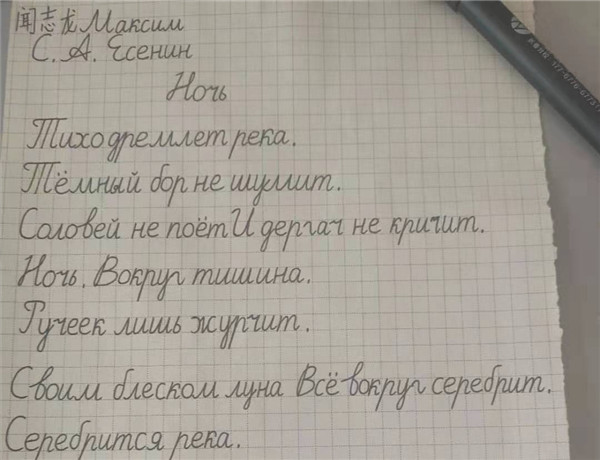 闻志龙 Максим
С. А. Есенин
Ночь
Тихо дремлет река.
Тёмный бор не шумит.
Соловей не поёт И дергач не кричит.
Ночь. Вокруг тишина.
Ручеек лишь журчит.
Своим блеском луна Всё вокруг серебрит.
Серебрится река.